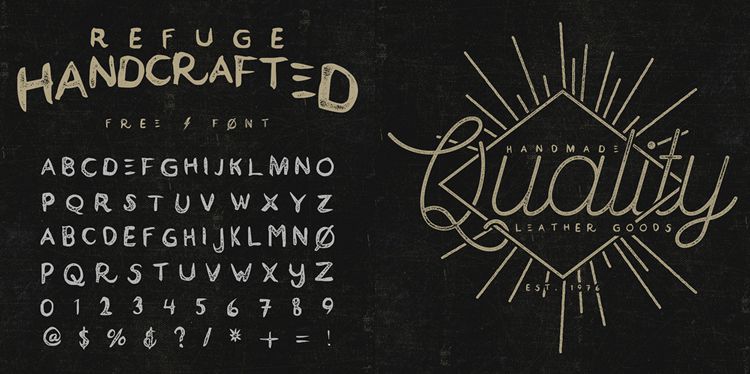 REFUGE
HANDCRAFTED
FREE FØNT
ABCDEFGHIJKLMNO
PQRSTUVWXYZ
ABCDEFGHIJKLMNØ
PQRSTUVWXYZ
0123456789
@$%&?/*+=!
HANDMADE
Quality
LEATHER GOODS
EST. 1976